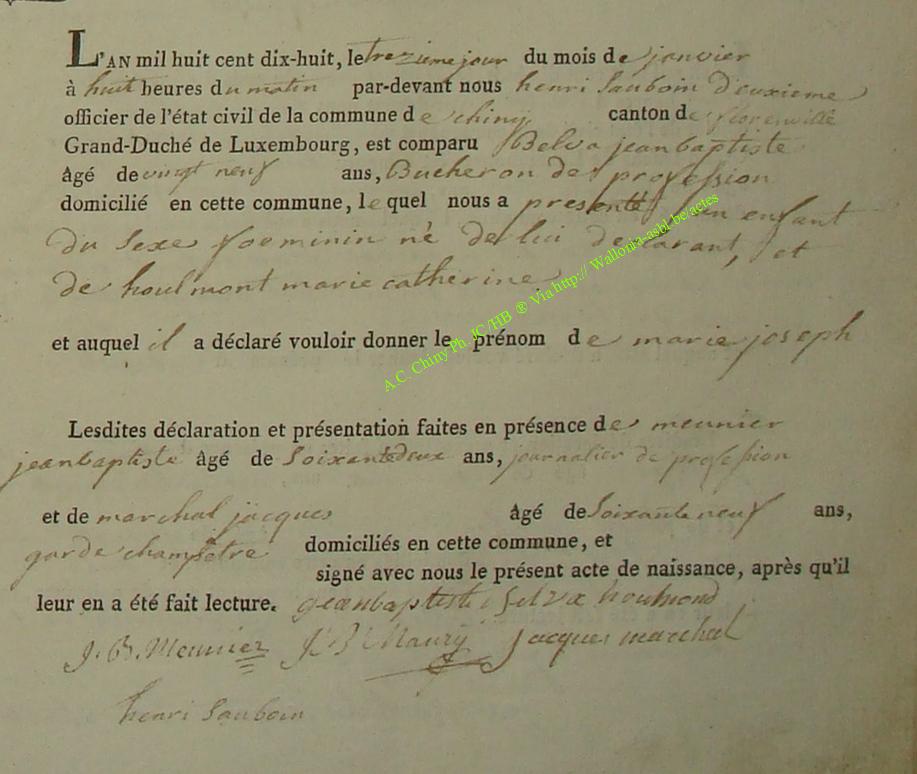 L'AN mil huit cent dix-huit, le trezieme jour du mois de janvier
à huit heures du matin par-devant nous henri Sauboin deuxieme
officier de l'état civil de la commune de chiny canton de florenville
Grand-Duché de Luxembourg, est comparu Belva jeanbaptiste
âgé de vingt neuf ans, Bucheron de profession
domicilié en cette commune, lequel nous a presenté un enfant
du sexe foeminin né de lui declarant, et
de houlmont marie catherine
et auquel il a déclaré vouloir donner le prénom de marie joseph
Lesdites déclaration et présentation faites en présence de meunier
jeanbaptiste âgé de Soixantedeux ans, journalier de profession
et de marchal jacques âgé de Soixante neuf ans,
garde champetre domiciliés en cette commune, et
signé avec nous le présent acte de naissance, après qu'il
leur en a été fait lecture. jeanbaptiste houlmond
J. B. Meunier J B Maury jacques marchal
henri Sauboin
A.C. Chiny Ph. JC/HB ® Via http:// Wallonia-asbl.be/actes